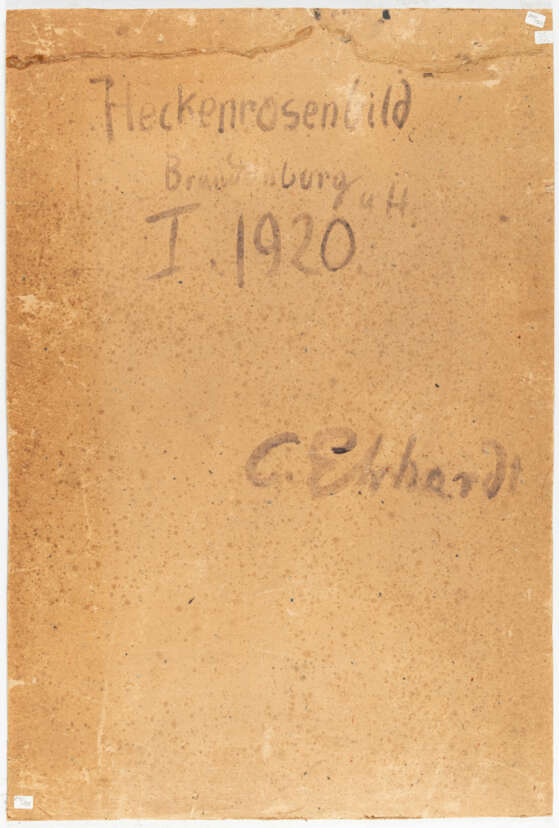 Heckenrosenbild
Brandenburg
a H.
I. 1920
C. Ehrhardt